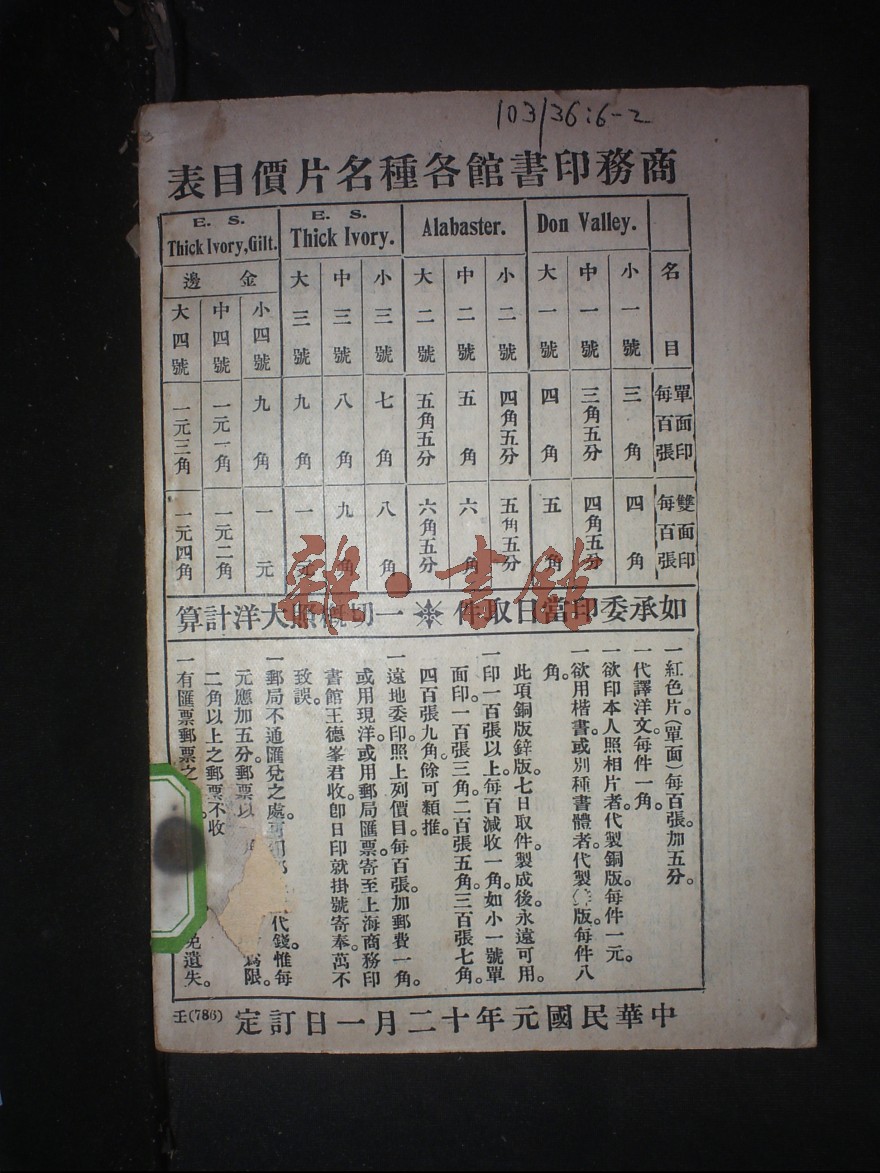 103/36:6-2
商務印書館各種名片價目表
名目
單面印每百張
雙面印每百張
Don Valley.
小一號
三角
四角
中一號
三角五分
四角五分
大一號
四角
五角
Alabaster.
小二號
四角五分
五角五分
中二號
五角
六角
大二號
五角五分
六角五分
E. S.
Thick Ivory.
小三號
七角
八角
中三號
八角
九角
大三號
九角
一元
E. S.
Thick Ivory, Gilt.
金邊
小四號
九角
一元
中四號
一元一角
一元二角
大四號
一元三角
一元四角
如承委印當日取件 一切概照大洋計算
一紅色片(單面)每百張加五分。
一代譯洋文每件一角。
一欲印本人照相片者代製銅版每件一元。
一欲用楷書或別種書體者代製鋅版每件八
角。
此項銅版鋅版七日取件製成後永遠可用。
一印一百張以上每百減收一角。如小一號單
面印一百張三角。二百張五角。三百張七角。
四百張九角。餘可類推。
一遠地委印照上列價目每百張加郵費一角。
或用現洋或用郵局匯票寄至上海商務印
書館王德峯君收。卽日印就掛號寄奉。萬不
致誤。
一郵局不通匯兌之處可用郵 代錢惟每
元應加五分。郵票以 爲限。
二角以上之郵票不收
一有匯票郵票之 免遺失。
中華民國元年十二月一日訂定
壬(786)
雜·書館